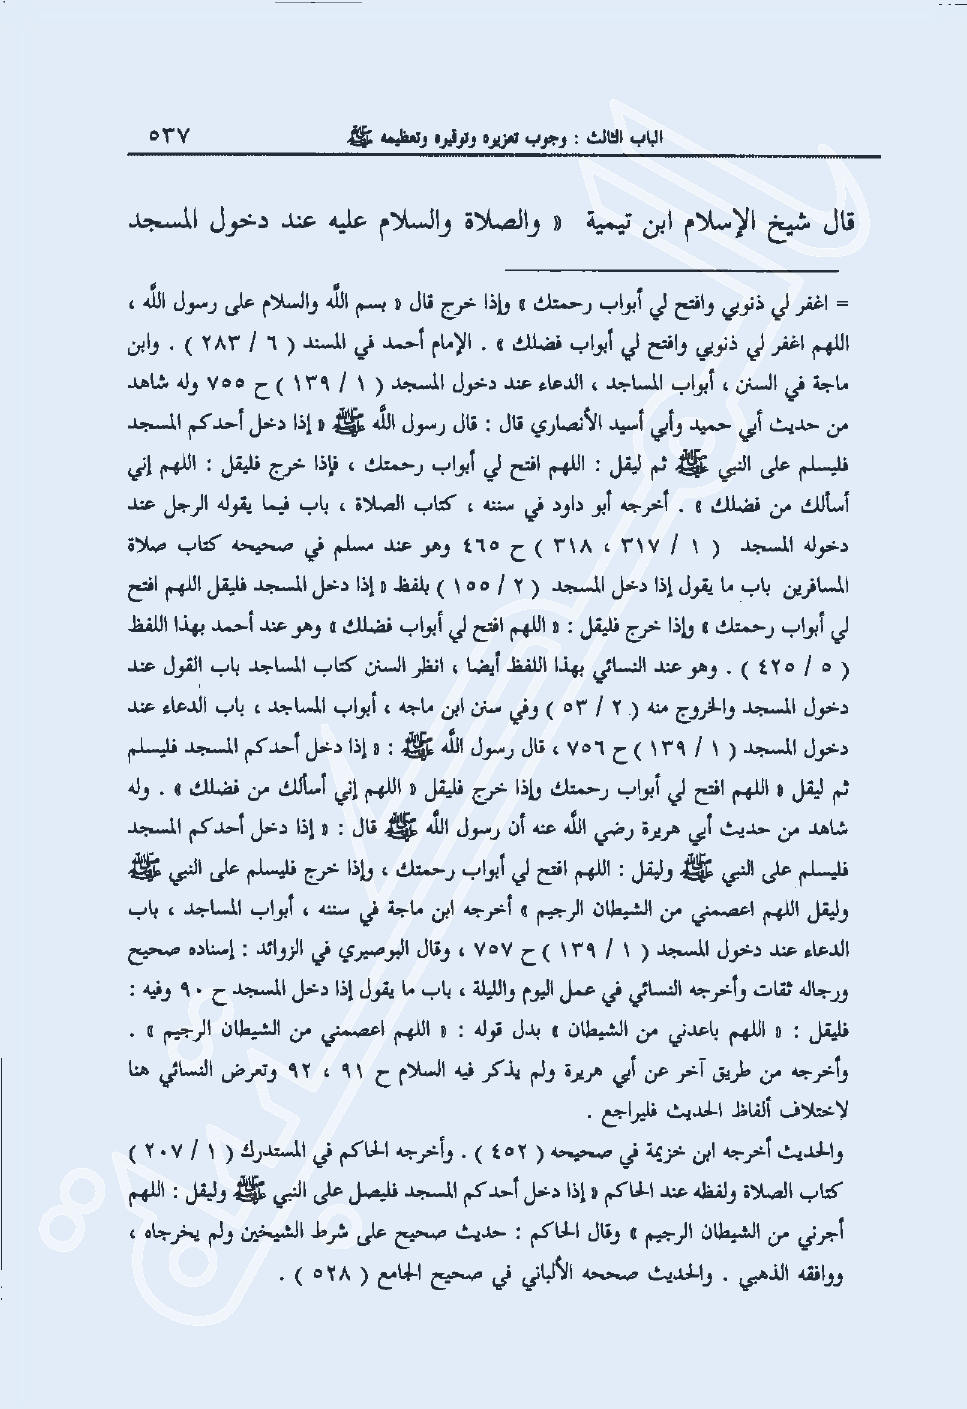 الباب الثالث : وجوب تعزيره وتوقيره وتعظيمه ﷺ ٥٣٧
قال شيخ الإسلام ابن تيمية « والصلاة والسلام عليه عند دخول المسجد
= اغفر لي ذنوبي وافتح لي أبواب رحمتك » وإذا خرج قال « بسم اللَّه والسلام على رسول اللَّه ،
اللهم اغفر لي ذنوبي وافتح لي أبواب فضلك » . الإمام أحمد في المسند ( ٦ / ٢٨٣ ) . وابن
ماجة في السنن ، أبواب المساجد ، الدعاء عند دخول المسجد ( ١ / ١٣٩ ) ح ٧٥٥ وله شاهد
من حديث أبي حميد وأبي أسيد الأنصاري قال : قال رسول اللَّه ﷺ « إذا دخل أحدكم المسجد
فليسلم على النبي ﷺ ثم ليقل : اللهم افتح لي أبواب رحمتك ، فإذا خرج فليقل : اللهم إني
أسألك من فضلك » . أخرجه أبو داود في سننه ، كتاب الصلاة ، باب فيما يقوله الرجل عند
دخوله المسجد ( ١ / ٣١٧ ، ٣١٨ ) ح ٤٦٥ وهو عند مسلم في صحيحه كتاب صلاة
المسافرين باب ما يقول إذا دخل المسجد ( ٢ / ١٥٥ ) بلفظ « إذا دخل المسجد فليقل اللهم افتح
لي أبواب رحمتك » وإذا خرج فليقل : « اللهم افتح لي أبواب فضلك » وهو عند أحمد بهذا اللفظ
( ٥ / ٤٢٥ ) . وهو عند النسائي بهذا اللفظ أيضا ، انظر السنن كتاب المساجد باب القول عند
دخول المسجد والخروج منه ( ٢ / ٥٣ ) وفي سنن ابن ماجه ، أبواب المساجد ، باب الدعاء عند
دخول المسجد ( ١ / ١٣٩ ) ح ٧٥٦ ، قال رسول اللَّه ﷺ : « إذا دخل أحدكم المسجد فليسلم
ثم ليقل « اللهم افتح لي أبواب رحمتك وإذا خرج فليقل « اللهم إني أسألك من فضلك » . وله
شاهد من حديث أبي هريرة رضي اللَّه عنه أن رسول اللَّه ﷺ قال : « إذا دخل أحدكم المسجد
فليسلم على النبي ﷺ وليقل : اللهم افتح لي أبواب رحمتك ، وإذا خرج فليسلم على النبي ﷺ
وليقل اللهم اعصمني من الشيطان الرجيم » أخرجه ابن ماجة في سننه ، أبواب المساجد ، باب
الدعاء عند دخول المسجد ( ١ / ١٣٩ ) ح ٧٥٧ ، وقال البوصيري في الزوائد : إسناده صحيح
ورجاله ثقات وأخرجه النسائي في عمل اليوم والليلة ، باب ما يقول إذا دخل المسجد ح ٩٠ وفيه :
فليقل : « اللهم باعدني من الشيطان » بدل قوله : « اللهم اعصمني من الشيطان الرجيم » .
وأخرجه من طريق آخر عن أبي هريرة ولم يذكر فيه السلام ح ٩١ ، ٩٢ وتعرض النسائي هنا
لاختلاف ألفاظ الحديث فليراجع .
والحديث أخرجه ابن خزيمة في صحيحه ( ٤٥٢ ) . وأخرجه الحاكم في المستدرك ( ١ / ٢٠٧ )
كتاب الصلاة ولفظه عند الحاكم « إذا دخل أحدكم المسجد فليصل على النبي ﷺ وليقل : اللهم
أجرني من الشيطان الرجيم » وقال الحاكم : حديث صحيح على شرط الشيخين ولم يخرجاه ،
ووافقه الذهبي . والحديث صححه الألباني في صحيح الجامع ( ٥٢٨ ) .